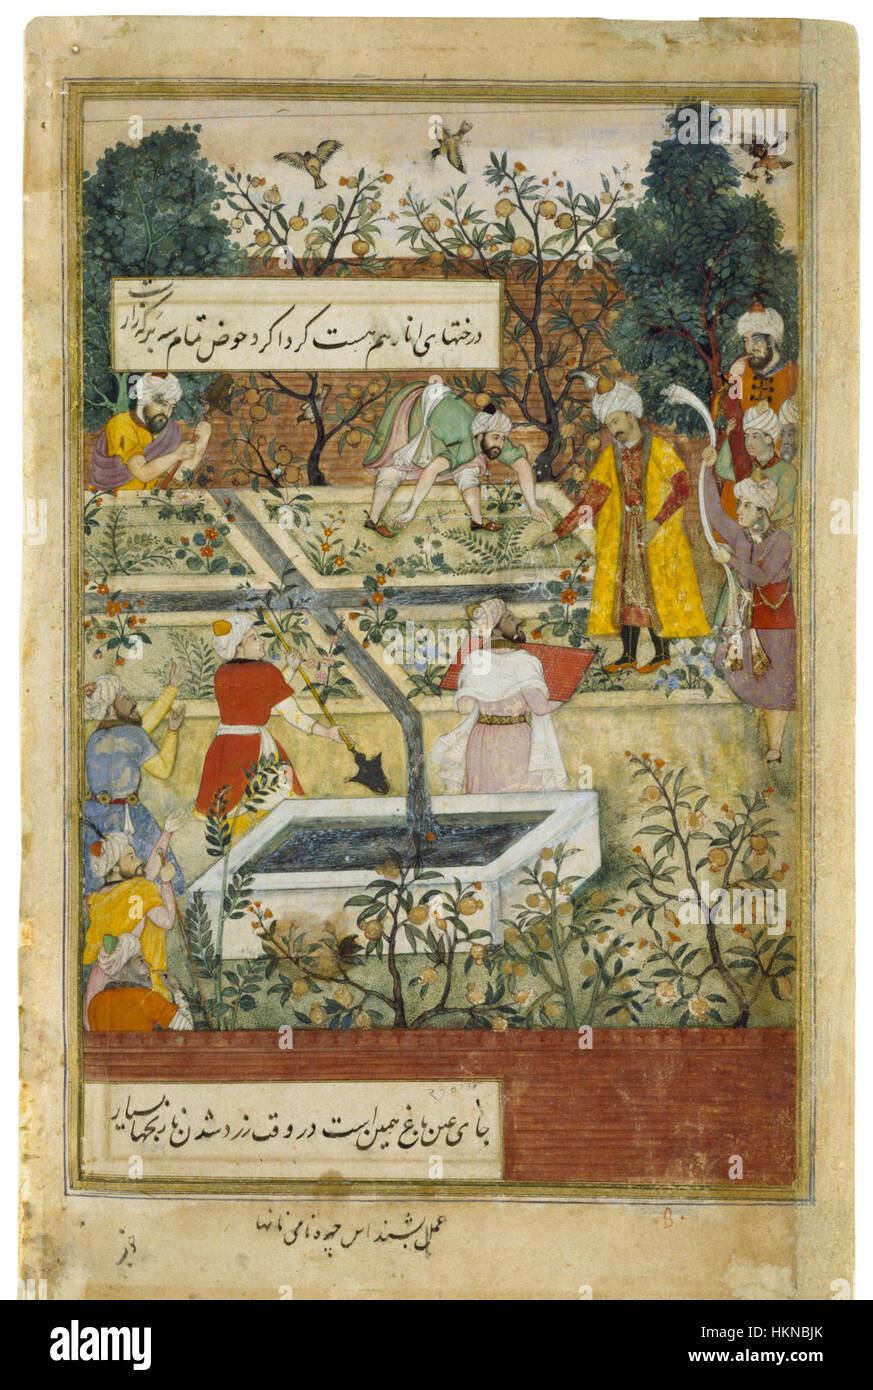 درختهای انار هم هست گرداگرد حوض تمام سه برگه زار
است
جای عین باغ همین است در وقت زرد شدن نارنجها بسیار
عمل بشنداس چهره نامی نانها
B.
a alamy stock photo
alamy
a
a
Image ID: HKNBJK
www.alamy.com